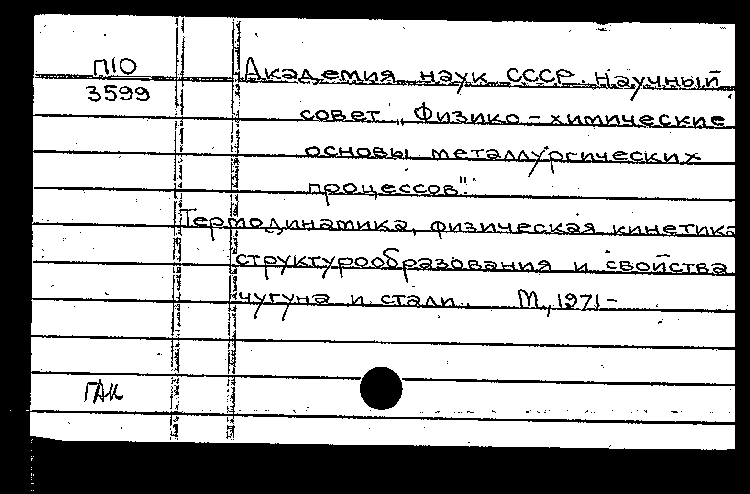 П10
3599
Академия наук СССР. Научный
совет „Физико-химические
основы металлургических
процессов".
Термодинамика, физическая кинетика
структурообразования и свойства
чугуна и стали. М., 1971-
ГАК